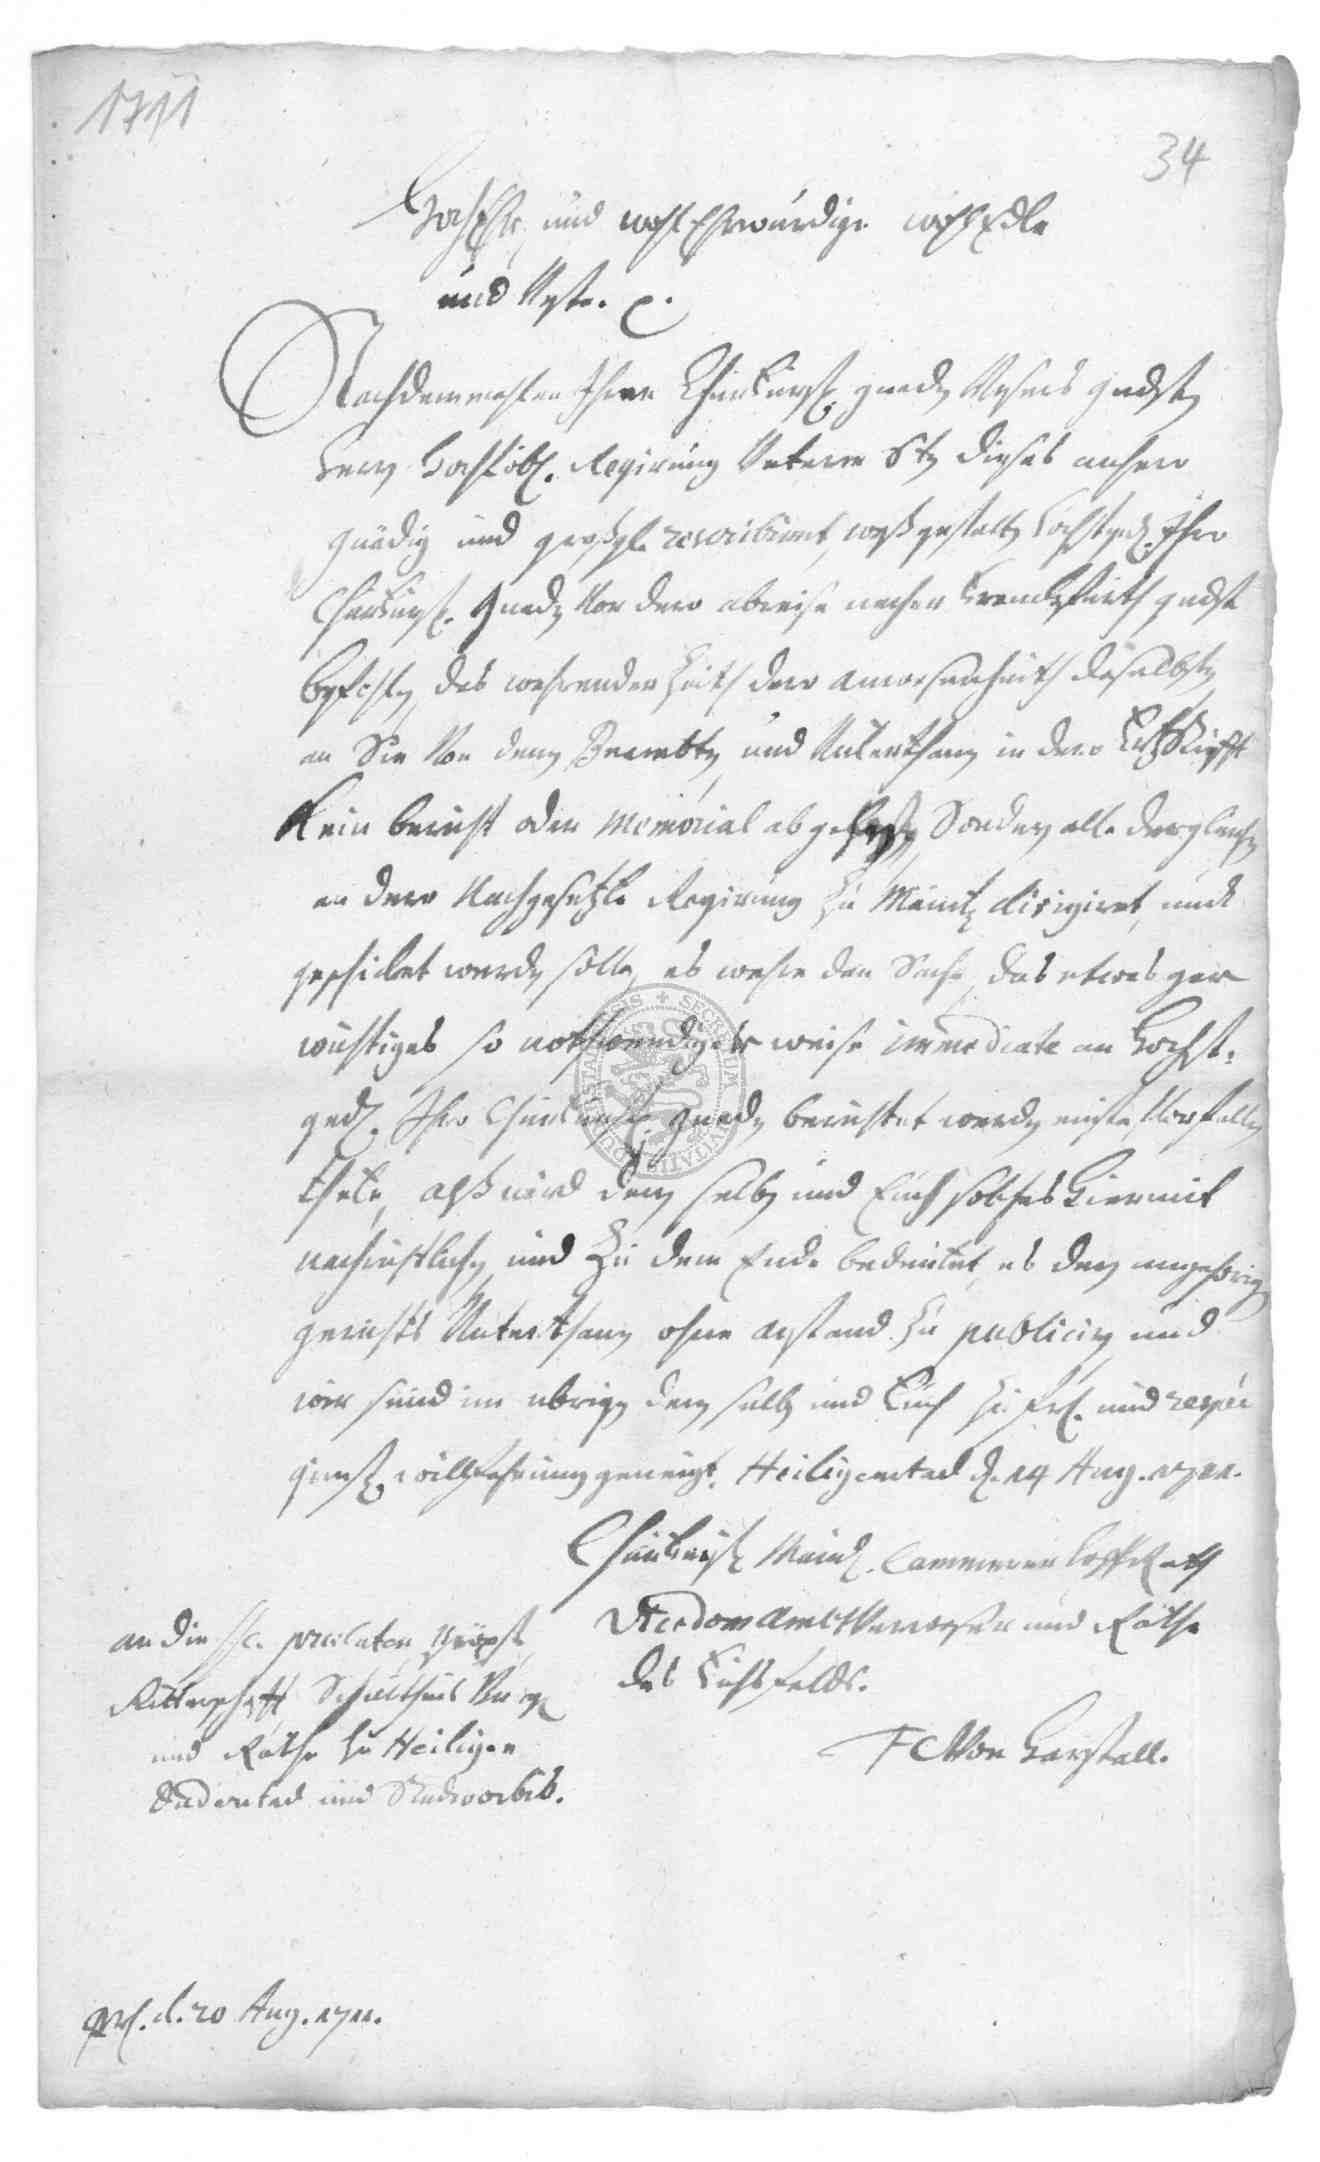 1711
34
HochEhr und wohlEhrwürdige wohlEdle
und Veste. p.
Nachdemmahlen Ihrer Churfürstl. gnaden Unsers gndsten
herrn hochlöbl. Regirung unterm 8ten dieses anhero
gnädig und großgl. rescribiret, waßgestalten höchstged. Ihro
Churfürstl. Gnaden vor dero abreise nacher Franckfurth gndst
befohlen, das wehrender Zeith dero anwesenheith daselbsten
an Sie von denen Beambten und Unterthanen in dero Ertzstifft
kein bericht oder Memorial abgelassen, Sondern alle dergleichen
an dero Nachgesetzte Regirung zu Maintz dirigiret, undt
geschicket werden solle, es wehre dan Sache, das etwas gar
wichtiges so nothwendiger weise immediate an höchst-
ged. Ihro Churfürstl. gnaden berichtet werden müste, vorfallen
thete, alß wird denen selben und Euch solches hiermit
nachrichtlichen und zu dem Ende bedeutet, es denen angehörigen
gerichts Unterthanen ohne anstand zu publiciren und
wir seind im übrigen denen selben und Euch zu frl. und respée
günstl. willfahrung geneigt. Heiligenstad d. 14 Aug. 1711.
Churfürstl. Maintz. Cammerer hoffRath
Vicedom AmbtsVerweser und Räthe
des Eichsfelds.
An die HH. praelaten, Pröpste,
Ritterschafft Schultheis Burg
und Räthe zu Heiligen
Duderstad und Stadtworbis.
FC Von Harstall.
prs. d. 20 Aug. 1711.